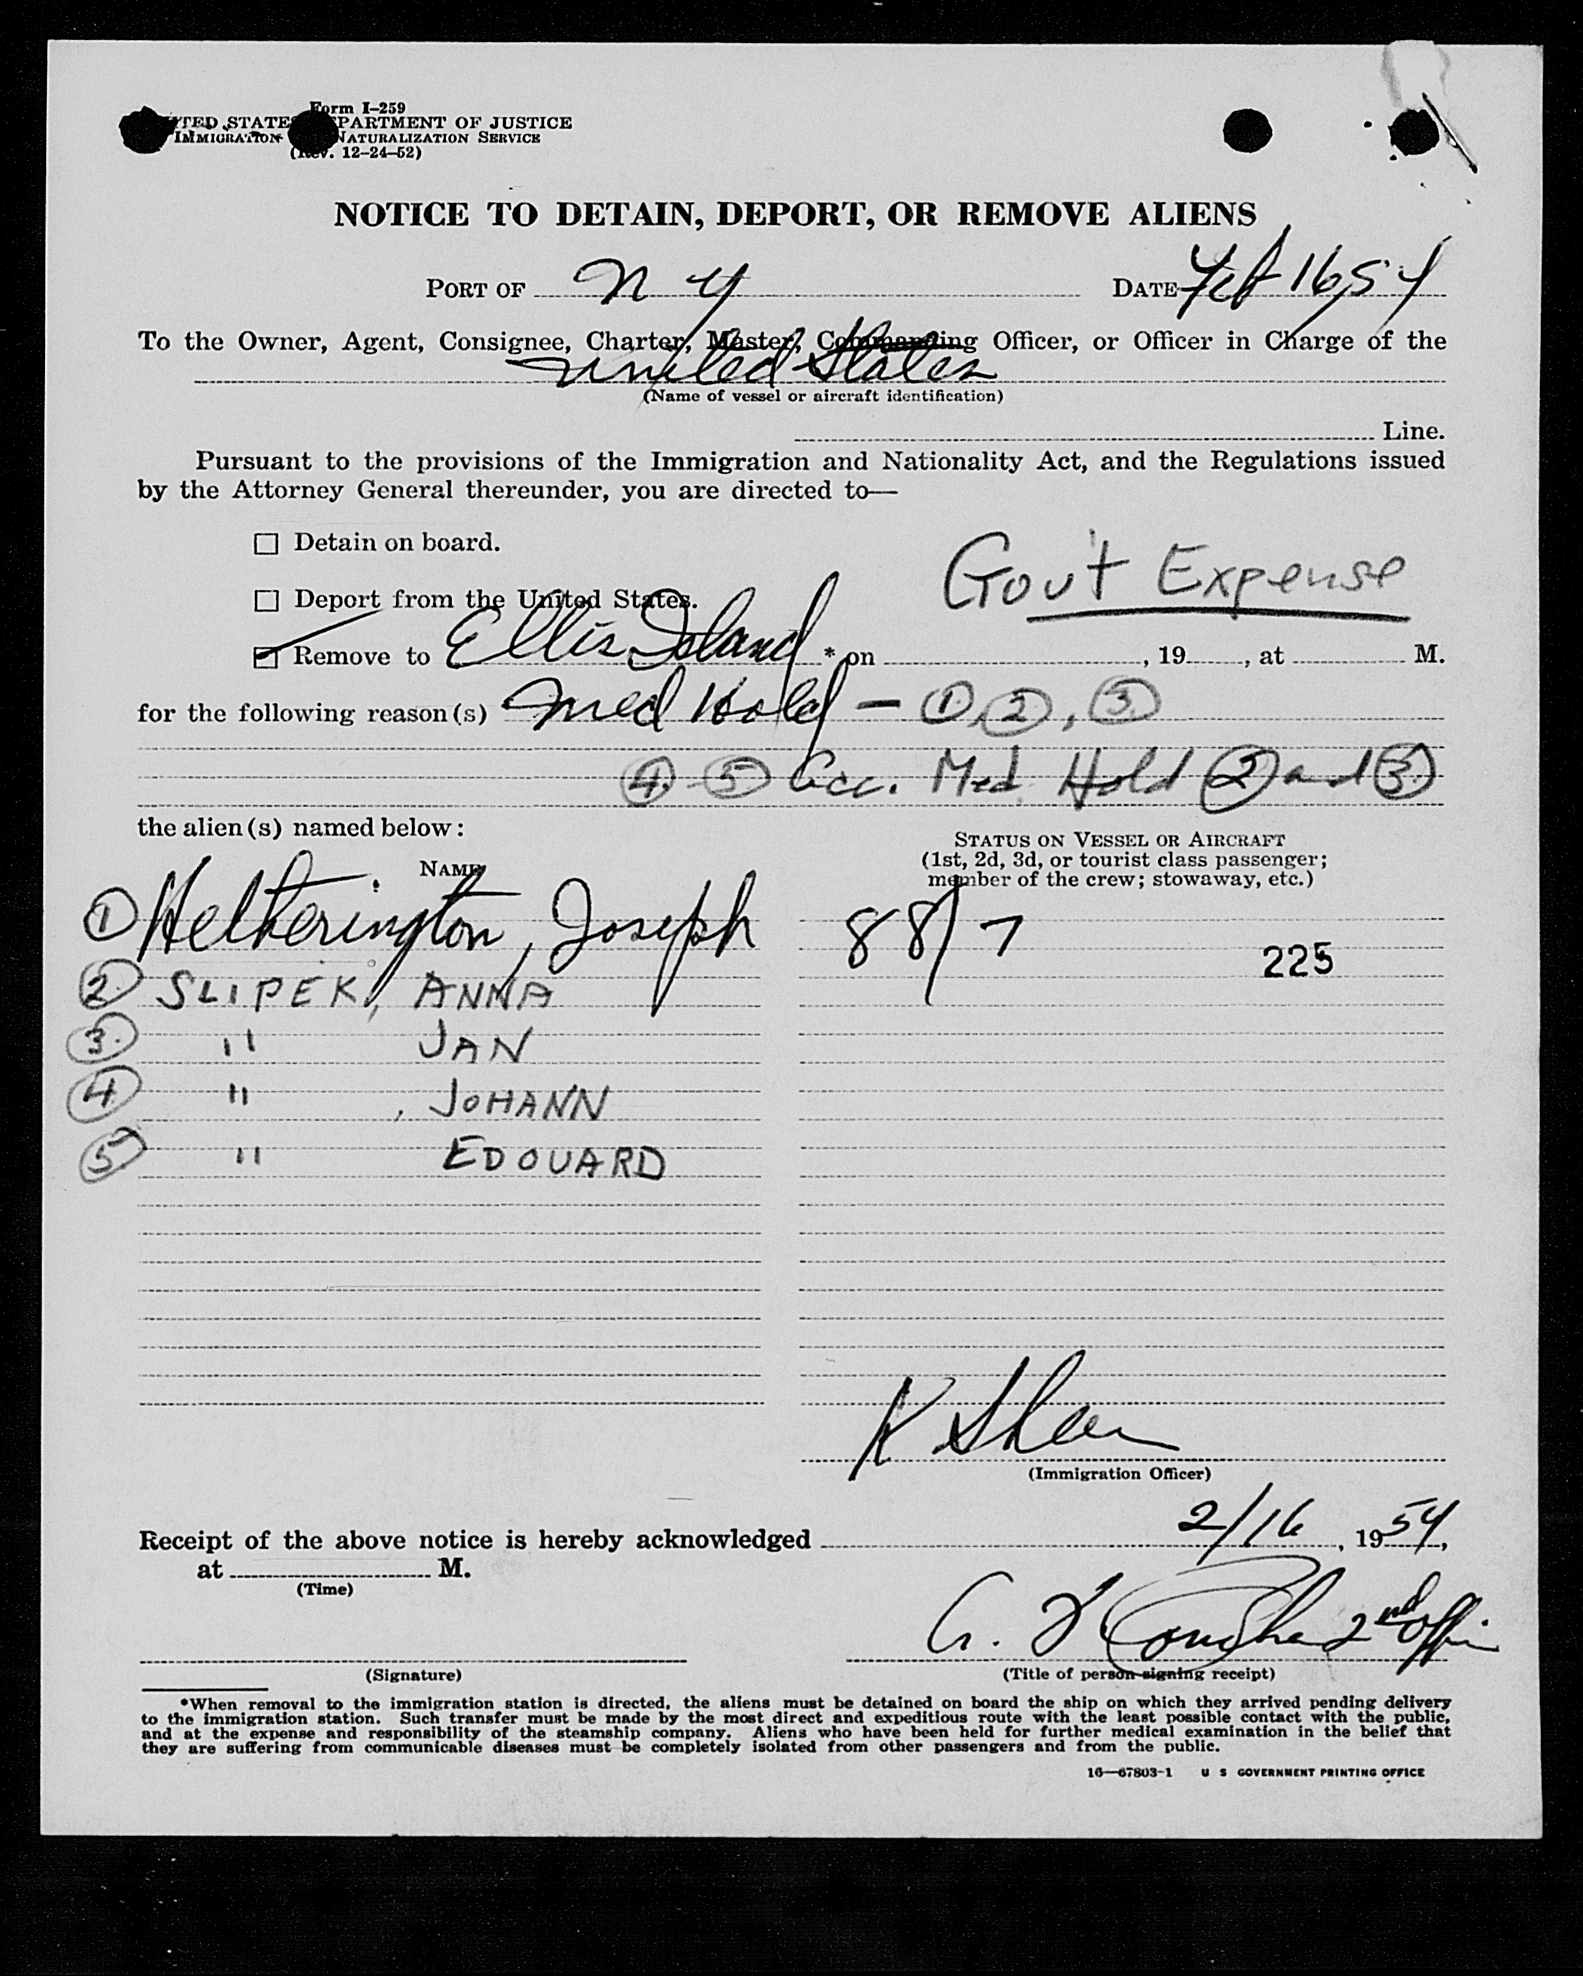 Form I-259
UNITED STATES DEPARTMENT OF JUSTICE
IMMIGRATION NATURALIZATION SERVICE
(Rev. 12-24-52)
NOTICE TO DETAIN, DEPORT, OR REMOVE ALIENS
PORT OF N Y DATE Feb 16, 54
To the Owner, Agent, Consignee, Charter, Master, Commanding Officer, or Officer in Charge of the
United States
(Name of vessel or aircraft identification)
Line.
Pursuant to the provisions of the Immigration and Nationality Act, and the Regulations issued
by the Attorney General thereunder, you are directed to—
☐ Detain on board.
Gov't Expense
☐ Deport from the United States.
☑ Remove to Ellis Island * on , 19 , at M.
for the following reason(s) Med Hold — ①, ②, ③
④ - ⑤ Acc. Med Hold ② and ③
the alien(s) named below:
STATUS ON VESSEL OR AIRCRAFT
NAME (1st, 2d, 3d, or tourist class passenger;
member of the crew; stowaway, etc.)
① Hetherington, Joseph 88/7
225
② SLIPEK, ANNA
③ " JAN
④ " , JOHANN
⑤ " EDOUARD
K Shea
(Immigration Officer)
Receipt of the above notice is hereby acknowledged 2/16, 1954,
at M.
(Time)
G. 2nd Offi
(Signature) (Title of person signing receipt)
*When removal to the immigration station is directed, the aliens must be detained on board the ship on which they arrived pending delivery
to the immigration station. Such transfer must be made by the most direct and expeditious route with the least possible contact with the public,
and at the expense and responsibility of the steamship company. Aliens who have been held for further medical examination in the belief that
they are suffering from communicable diseases must be completely isolated from other passengers and from the public.
16—67803-1 U S GOVERNMENT PRINTING OFFICE